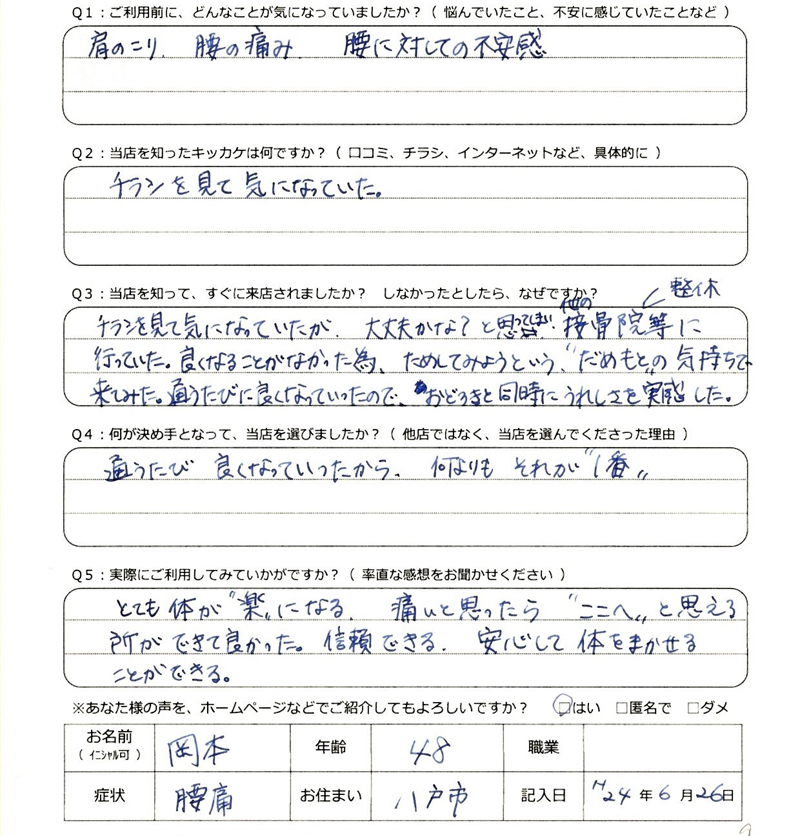 Q1：ご利用前に、どんなことが気になっていましたか？（ 悩んでいたこと、不安に感じていたことなど ）
肩のこり、腰の痛み、腰に対しての不安感
Q2：当店を知ったキッカケは何ですか？（ 口コミ、チラシ、インターネットなど、具体的に ）
チラシを見て気になっていた。
Q3：当店を知って、すぐに来店されましたか？　しなかったとしたら、なぜですか？
整体
他の
チラシを見て気になっていたが、大丈夫かな？と思ってしまい、接骨院等に
行っていた。良くなることがなかった為、ためしてみようという、"だめもと"の気持ちで
来てみた。通うたびに良くなっていったので、おどろきと同時にうれしさを実感した。
Q4：何が決め手となって、当店を選びましたか？（ 他店ではなく、当店を選んでくださった理由 ）
通うたび 良くなっていったから、何なりも それが"1番"
Q5：実際にご利用してみていかがですか？（ 率直な感想をお聞かせください ）
とても体が"楽"になる。痛いと思ったら "ここへ"と思える
所ができて良かった。信頼できる。安心して体をまかせる
ことができる。
※あなた様の声を、ホームページなどでご紹介してもよろしいですか？　□はい　□匿名で　□ダメ
お名前（ イニシャル可 ） 岡本 年齢 48 職業
症状 腰痛 お住まい 八戸市 記入日 H24年6月26日